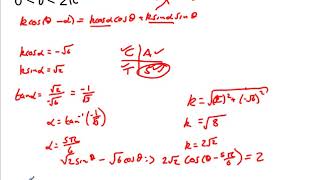 0 < θ < 2π
k cos(θ - α) = k cosα cosθ + k sinα sinθ
k cosα = -√6
k sinα = √2
✓C | A✓
✓T | S✓✓
tanα = √2/-√6 = -1/√3
α = tan⁻¹(-1/√3)
α = 5π/6
k = √((√2)² + (-√6)²)
k = √8
k = 2√2
√2 sinθ - √6 cosθ => 2√2 cos(θ - 5π/6) = 2